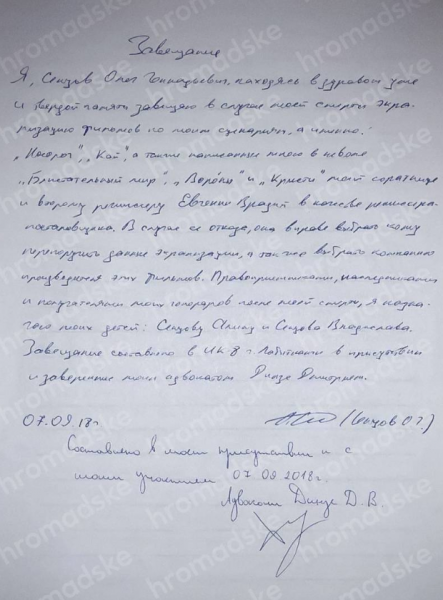 Завещание
Я, Сенцов Олег Геннадьевич, находясь в здравом уме
и твердой памяти завещаю в случае моей смерти экра-
низацию фильмов по моим сценариям, а именно:
„Носорог", „Кай", а также написанные мною в неволе
„Блистательный мир", „ " и „ " моей соратнице
и второму режиссеру Евгении Врадий в качестве режиссера-
постановщика. В случае ее отказа, она вправе выбрать кому
перепоручить данные экранизации, а также выбрать компанию
производителя этих фильмов. Правоприемниками, наследниками
и получателями моих гонораров после моей смерти, я назна-
чаю моих детей: Сенцову Алину и Сенцова Владислава.
Завещание составлено в ИК-8 г. Лабытнанги в присутствии
и заверенное моим адвокатом Динзе Дмитрием.
07.08.18 г. (Сенцов О.Г.)
Составлено в моем присутствии и с
моим участием 07.08.2018 г.
Адвокат Динзе Д.В.
hromadske